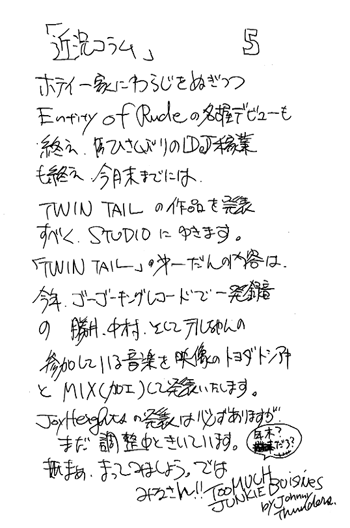 「近況コラム」 5
ホテイ一家にわらじをぬぎつつ
Entity of Rudeの名盤デビューも
終え、ひさしぶりのDJ稼業
も終え、今月末までには、
TWIN TAIL の作品を発表
すべく、STUDIO にゆきます。
「TWIN TAIL」の第一だんの内容は、
今年、ゴーゴーキングレコードで一発録音
の 勝井、中村、そして
参加している音楽を映像のトヨダトシアキ
と MIX(加工)して発表いたします。
Joy Heightsの発表は必ずありますが
まだ調整中ときいています。 年末?
だろう?
まぁ、まってつぱしょう。では
みなさん!! TOO MUCH
JUNKIE BUISINES
by Johnny
Thunders.